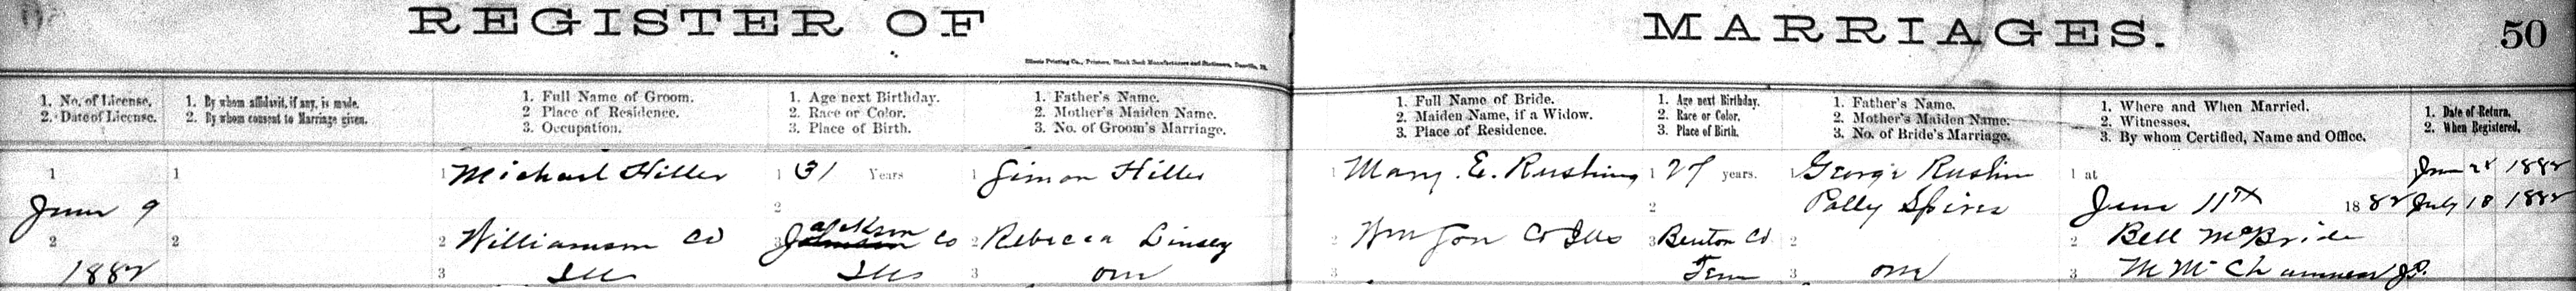 REGISTER OF MARRIAGES. 50
Illinois Printing Co., Printers, Blank Book Manufacturers and Stationers, Danville, Ill.
1. No. of License.
2. Date of License.
1. By whom affidavit, if any, is made.
2. By whom consent to Marriage given.
1. Full Name of Groom.
2 Place of Residence.
3. Occupation.
1. Age next Birthday.
2. Race or Color.
3. Place of Birth.
1. Father's Name.
2. Mother's Maiden Name.
3. No. of Groom's Marriage.
1. Full Name of Bride.
2. Maiden Name, if a Widow.
3. Place of Residence.
1. Age next Birthday.
2. Race or Color.
3. Place of Birth.
1. Father's Name.
2. Mother's Maiden Name.
3. No. of Bride's Marriage.
1. Where and When Married.
2. Witnesses.
3. By whom Certified, Name and Office.
1. Date of Return.
2. When Registered.
1
June 9
2
1882
1
2
1 Michael Hiller
2 Williamson Co
3 Ills
1 31 Years
2
Jackson
3 Johnson Co
Ills
1 Simon Hiller
2 Rebecca Linsey
3 one
1 Mary. E. Rushing
2 Wmson Co Ills
3
1 27 years.
2
3 Benton Co
Tenn
1 George Rushin
Polly Spires
2
3 one
1 at
June 11th 1882
2 Bell McBride
3 M Mc J.P.
June 28 1882
July 18 1882